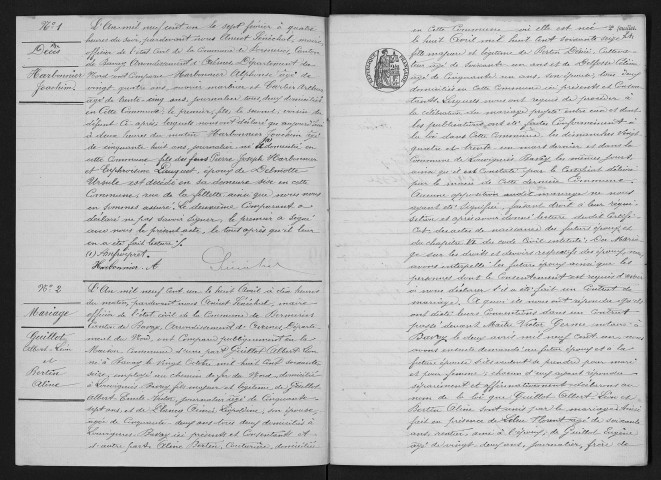 N° 1
Décès
Harbonnier
Joachim
L'An mil neuf cent un le sept février à quatre
heures du soir, pardevant nous
officier de l'état civil de la Commune de
de Bavay, Arrondissement d'Avesnes, Département du
Nord, ont comparu Harbonnier Alphonse âgé de
vingt quatre ans, ouvrier marbrier et Carlier Arthur
âgé de trente cinq ans, journalier, tous deux domiciliés
en cette Commune, le premier fils, le second, voisin du
défunt ci après, lesquels nous ont déclaré qu'aujourd'hui
à deux heures du matin Harbonnier Joachim âgé
de cinquante huit ans, journalier, né domicilié en
cette commune fils des feus Pierre Joseph Harbonnier
et Euphrosine époux de Delmotte
Ursule est décédé en sa demeure sise en cette
Commune, rue de ainsi que nous nous
en sommes assuré. Le deuxième Comparant a
déclaré ne pas savoir signer, le premier a signé
avec nous le présent acte, le tout après qu'il leur
en a été fait lecture.
Harbonnier A
N° 2
Mariage
Guillot
Albert Léon
et
Bertin
Aline
L'An mil neuf cent un le huit Avril à dix heures
du matin, pardevant nous maire
officier de l'état civil de la Commune de
Canton de Bavay, Arrondissement d'Avesnes, Départe-
ment du Nord, ont comparu publiquement en la
Maison Commune d'une part Guillot Albert Léon
né à Bavay le vingt octobre mil huit cent soixante
seize, employé au chemin de fer du Nord, domicilié
à Louvignies Bavay fils majeur et légitime de Guillot
Albert Emile Victor, journalier, âgé de cinquante
sept ans et de son épouse,
âgée de cinquante deux ans, tous deux domiciliés à
Louvignies Bavay ici présents et consentant et
d'autre part Aline Bertin, couturière, domiciliée
en cette Commune où elle est née
le huit Avril mil huit cent soixante
fille majeure et légitime de Bertin Désiré, cultiva-
teur âgé de cinquante un ans et de
âgée de cinquante un ans, son épouse, tous deux
domiciliés en cette Commune ici présents et consen-
tant. Lesquels nous ont requis de procéder à
la célébration du mariage projeté entre eux et dont
les publications ont été faites conformément à
la loi dans cette Commune, les dimanches vingt
quatre et trente un mars dernier et dans la
Commune de Louvignies Bavay les mêmes jours,
ainsi qu'il est constaté par le certificat délivré
par le maire de cette dernière Commune.
Aucune opposition audit mariage ne nous
ayant été signifiée, faisant droit à leur réqui-
sition et après avoir donné lecture dudit certifi-
cat, des actes de naissance des futurs époux et
du chapitre VI du code civil intitulé : Du Maria-
ge sur les droits et devoirs respectifs des époux, nous
avons interpellé les futurs époux ainsi que les
personnes dont le consentement est requis d'avoir
à nous déclarer s'il a été fait un contrat de
mariage. A quoi ils nous ont répondu qu'ils
ont réglé leurs conventions dans un contrat
passé devant Maître Victor notaire à
Bavay, le deux avril mil neuf cent un. Nous
avons ensuite demandé au futur époux et à la
future épouse s'ils veulent se prendre pour mari
et pour femme ; chacun d'eux ayant répondu
séparément et affirmativement déclarons au
nom de la loi que Guillot Albert Léon et
Bertin Aline sont unis par le mariage. Ainsi
fait en présence de âgé de soixante
ans, rentier, ami à l'époux, de Guillot Eugène
âgé de vingt deux ans, journalier, frère de